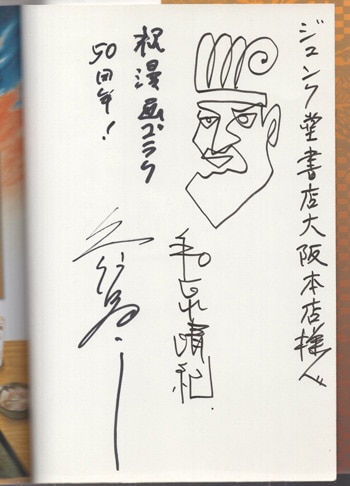 ジュンク堂書店大阪本店様へ
祝漫画ゴラク
50周年!
和泉晴紀
久住昌之